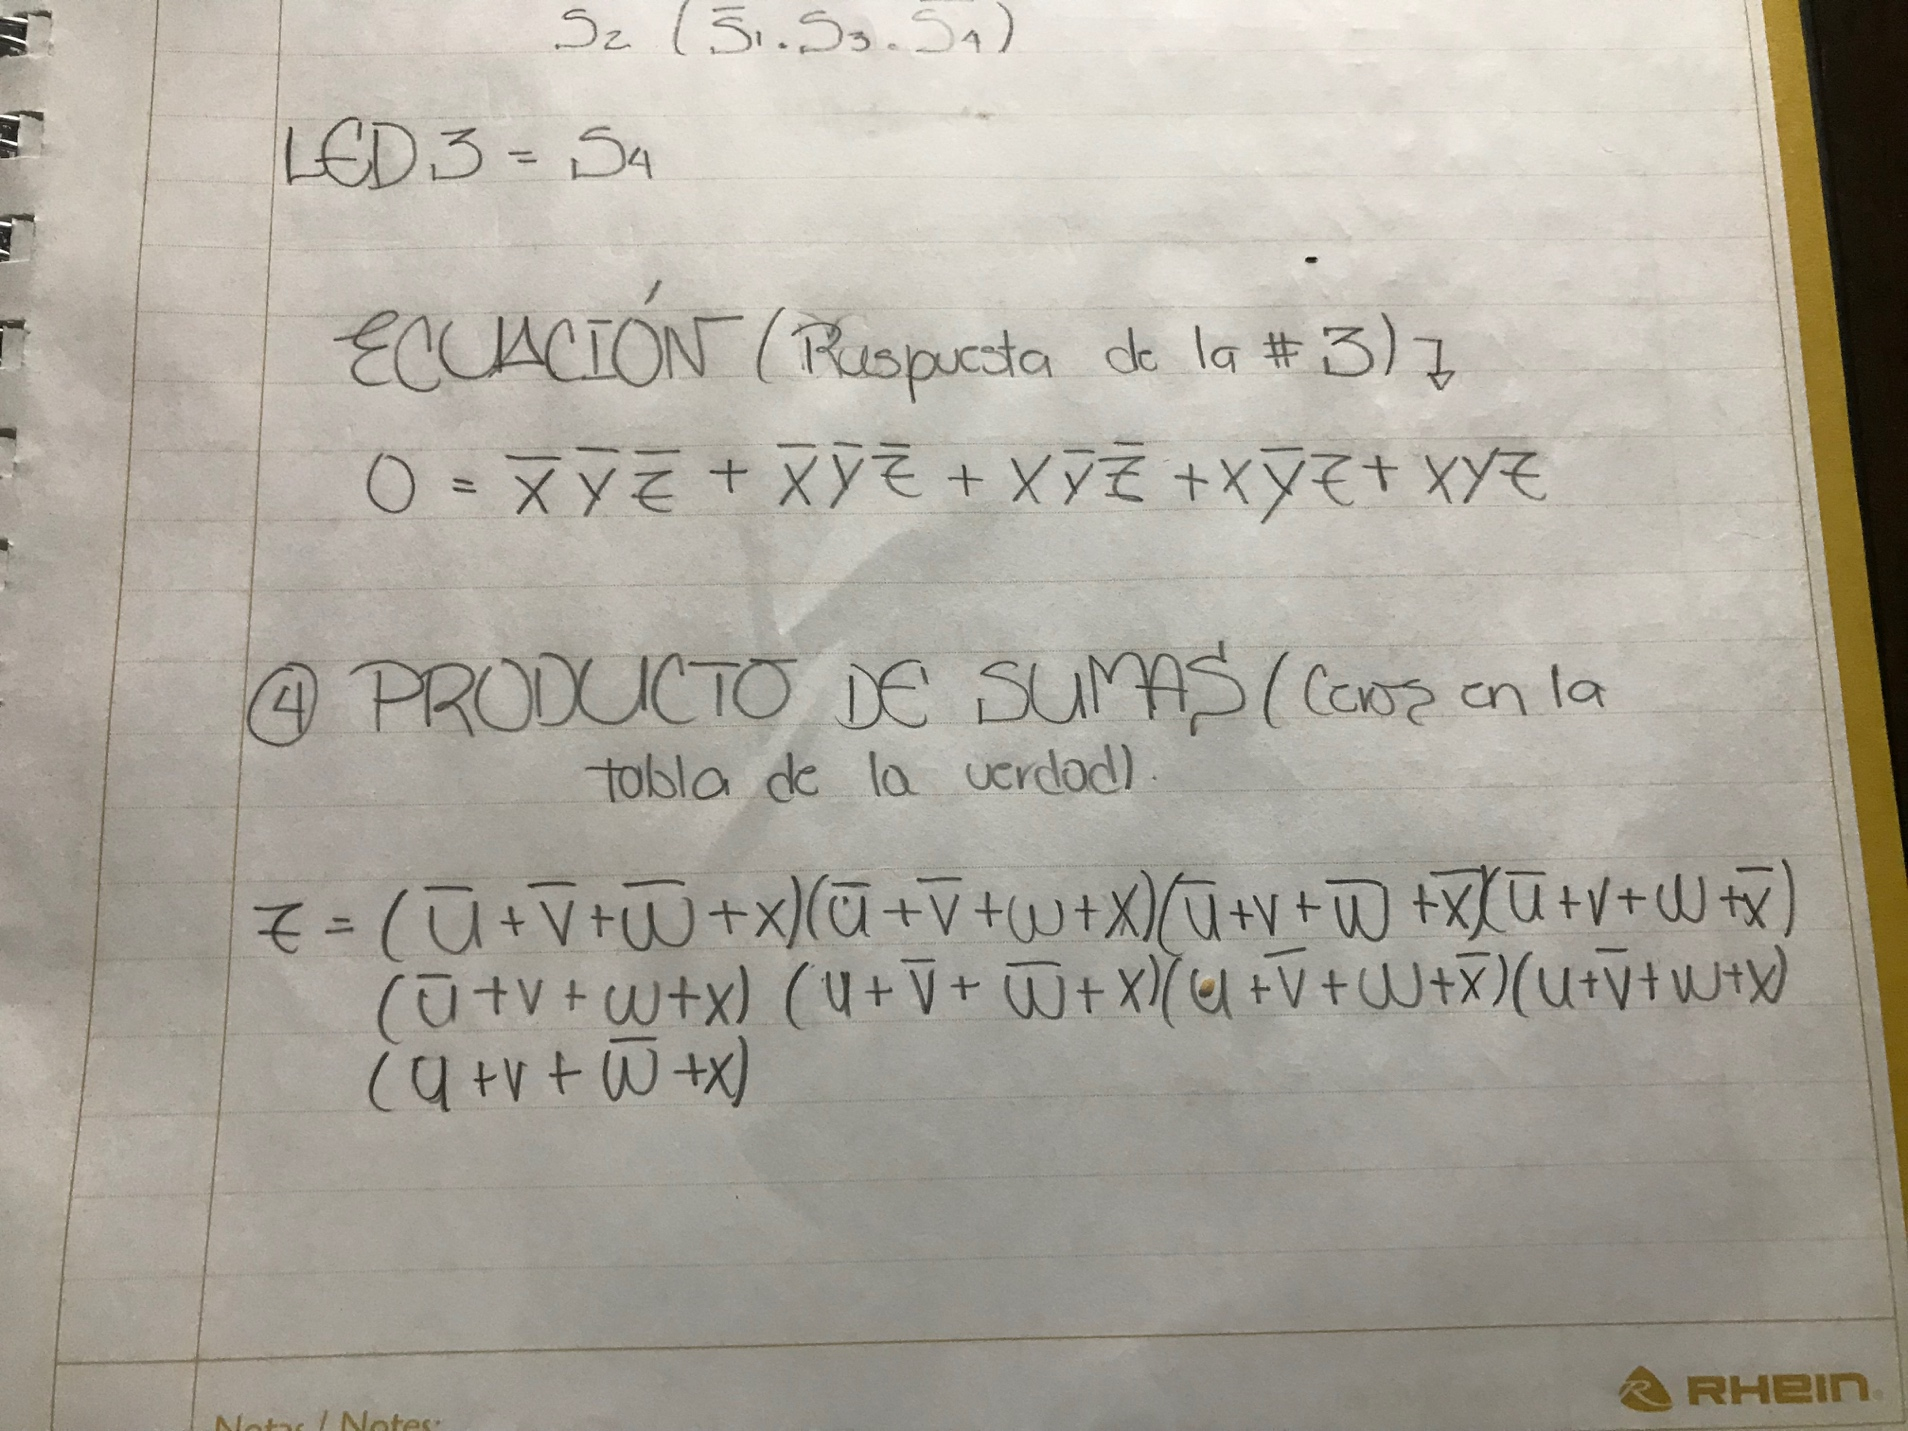 S₂ (S̅₁.S₃.S̅₄)
LED3 = S₄
ECUACIÓN (Respuesta de la # 3) ↴
O = X̅ Y̅ Z̅ + X̅ Y̅ Z̅ + X Y̅ Z̅ + X Y̅ Z + X Y Z
④ PRODUCTO DE SUMAS (Ceros en la
tabla de la verdad).
Z = (U̅+V̅+W̅+X)(U̅+V̅+W+X)(U̅+V+W̅+X̅)(U̅+V+W+X̅)
(U̅+V+W+X) (U+V̅+W̅+X)(U+V̅+W+X̅)(U+V̅+W+X)
(U+V+W̅+X)
RHEIN
Notas / Notes: